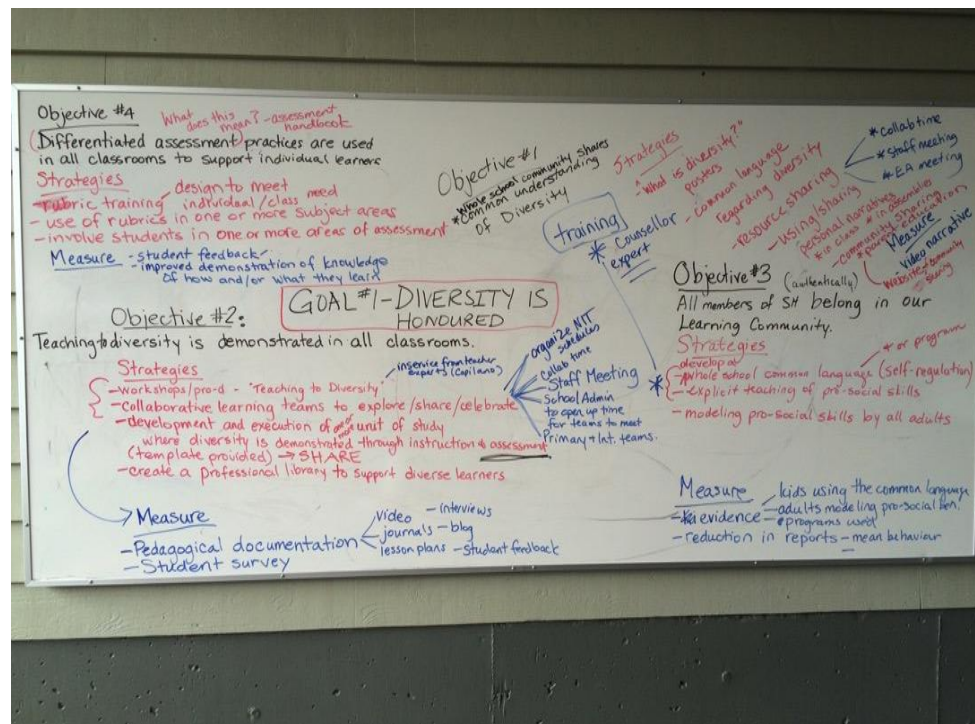 Objective #4
What does this mean? - assessment handbook
Differentiated assessment practices are used
in all classrooms to support individual learners
Strategies
- rubric training design to meet individual/class need
- use of rubrics in one or more subject areas
- involve students in one or more areas of assessment
Measure - student feedback
- improved demonstration of knowledge
of how and/or what they learn
Objective #1
Whole school community shares
* Common understanding
of Diversity
Strategies
"What is diversity?"
posters
- common language
regarding diversity
- resource sharing
* Collab time
* Staff meeting
* EA meeting
- using/sharing
personal narratives
* in class * in assemblies
* community sharing
* parent education
Measure
video narrative
website community
training
* Counsellor
expert
GOAL #1 - DIVERSITY IS
HONOURED
Objective #2:
Teaching to diversity is demonstrated in all classrooms.
Strategies
- workshops/pro-d - "Teaching to Diversity"
inservice from teacher
experts (Capilano)
- collaborative learning teams to explore/share/celebrate
- development and execution of one or more unit of study
where diversity is demonstrated through instruction & assessment
(template provided) → SHARE
- create a professional library to support diverse learners
organize NIT
schedules
Collab time
Staff Meeting
School Admin
to open up time
for teams to meet
Primary + Int. teams.
→ Measure
- Pedagogical documentation
video - interviews
journals - blog
lesson plans - student feedback
- Student survey
Objective #3 (authentically)
All members of SH belong in our
Learning Community.
Strategies
* or program
develop a
* - whole school common language (self-regulation)
- explicit teaching of pro-social skills
- modeling pro-social skills by all adults
Measure
- evidence
- kids using the common language
- adults modeling pro-social beh.
- programs used
- reduction in reports - mean behaviour